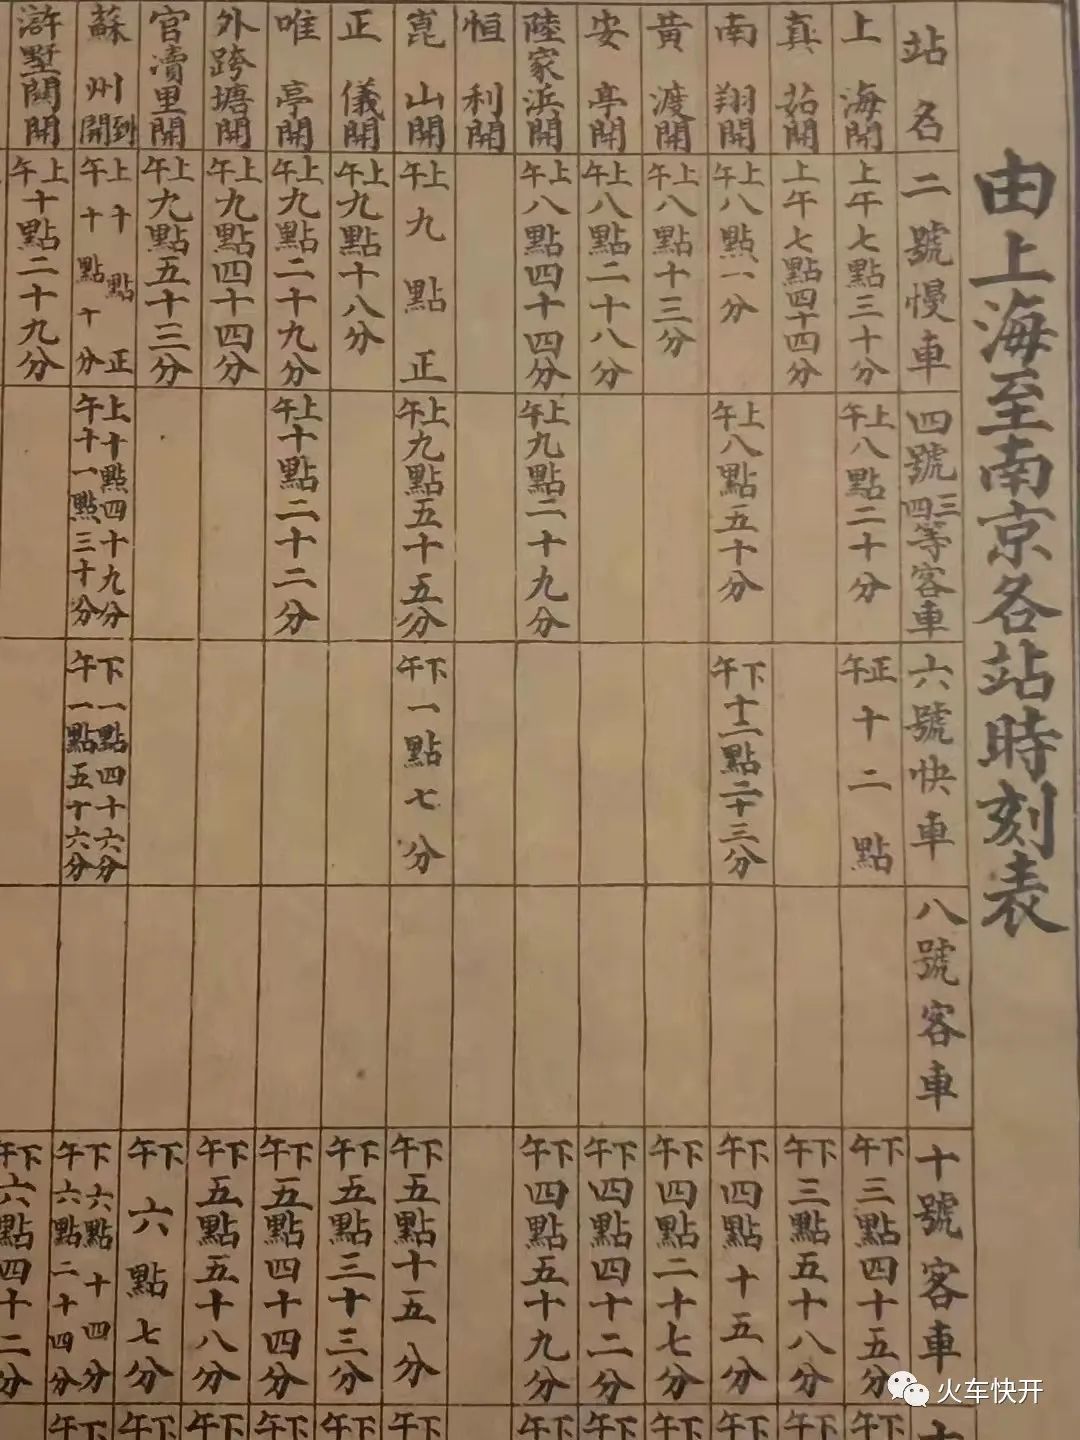 由上海至南京各站時刻表
站名
二號慢車
四號三四等客車
六號快車
八號客車
十號客車
上海開
上午七點三十分
上午八點二十分
正午十二點
下午三點四十五分
真茹開
上午七點四十四分
下午三點五十八分
南翔開
上午八點一分
上午八點五十分
下午十二點二十三分
下午四點十五分
黃渡開
上午八點十三分
下午四點二十七分
安亭開
上午八點二十八分
下午四點四十二分
陸家浜開
上午八點四十四分
上午九點二十九分
下午四點五十九分
恒利開
崑山開
上午九點正
上午九點五十五分
下午一點七分
下午五點十五分
正儀開
上午九點十八分
下午五點三十三分
唯亭開
上午九點二十九分
上午十點二十二分
下午五點四十四分
外跨塘開
上午九點四十四分
下午五點五十八分
官瀆里開
上午九點五十三分
下午六點七分
蘇州到開
上午十點正
十點十分
上午十點四十九分
十一點三十分
下午一點四十六分
一點五十六分
下午六點十四分
六點二十四分
滸墅關開
上午十點二十九分
下午六點四十二分
下午
下午
下午
下午
下午
下午
下午
下午
下午
下午
下午
火车快开